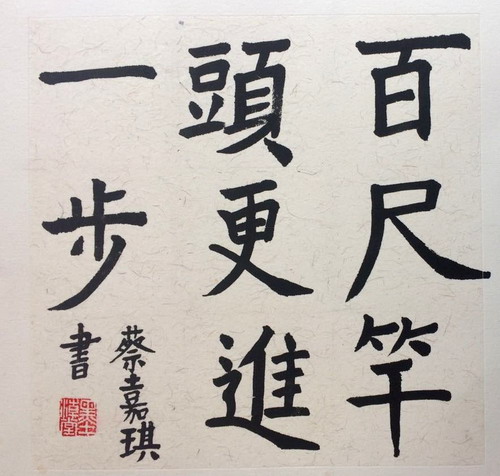 百尺竿
頭更進
一步
蔡嘉琪
書